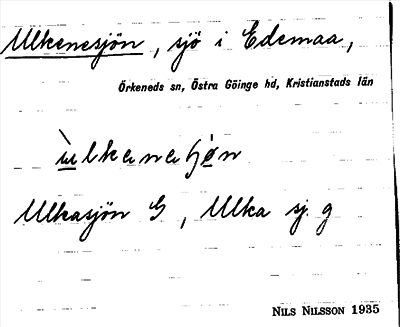 Ulkenesjön, sjö i Edemaa,
Örkeneds sn, Östra Göinge hd, Kristianstads län
Ulkasjön G, Ulka sj. g
NILS NILSSON 1935